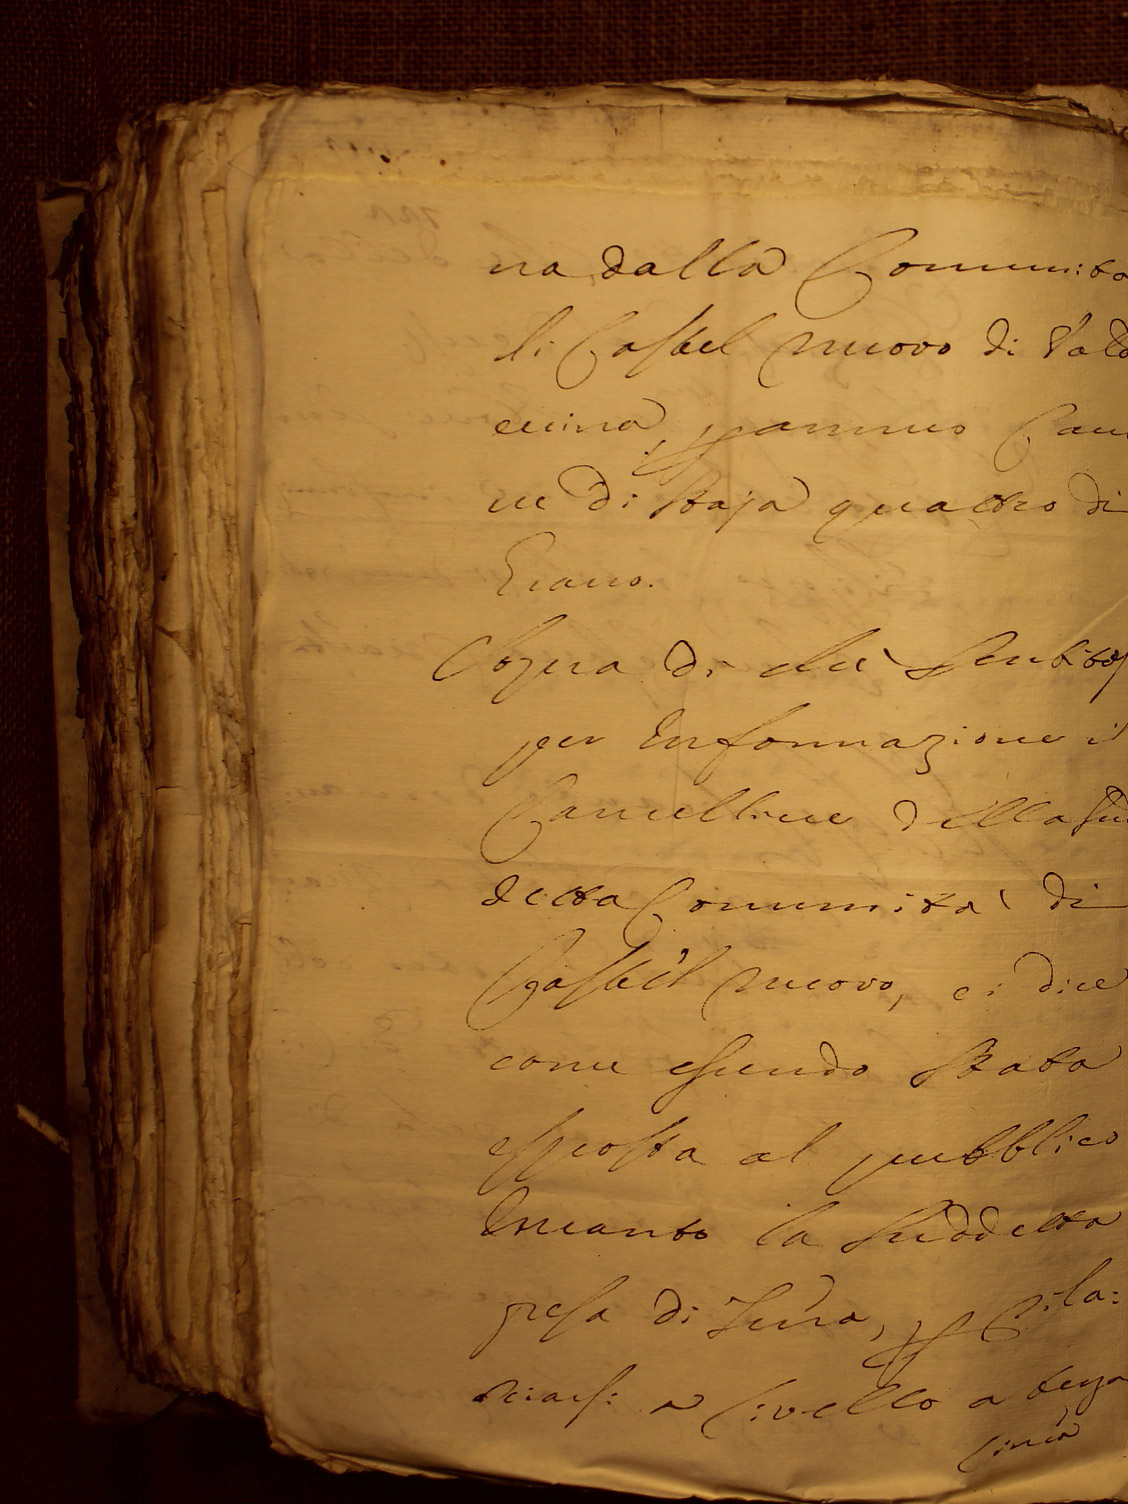 na dalla Comunita
di Castel nuovo di Vald
cecina, p annuo Cano
ne di Staja quattro di
Grano.
Sopra di che Sentitosi
per Informazione il
Cancelliere della Sud
detta Comunità di
Castel nuovo, ci dice
come essendo Stata
esposta al pubblico
Incanto la Suddetta
presa di Terra, p rila:
sciarsi a livello a terza
linea